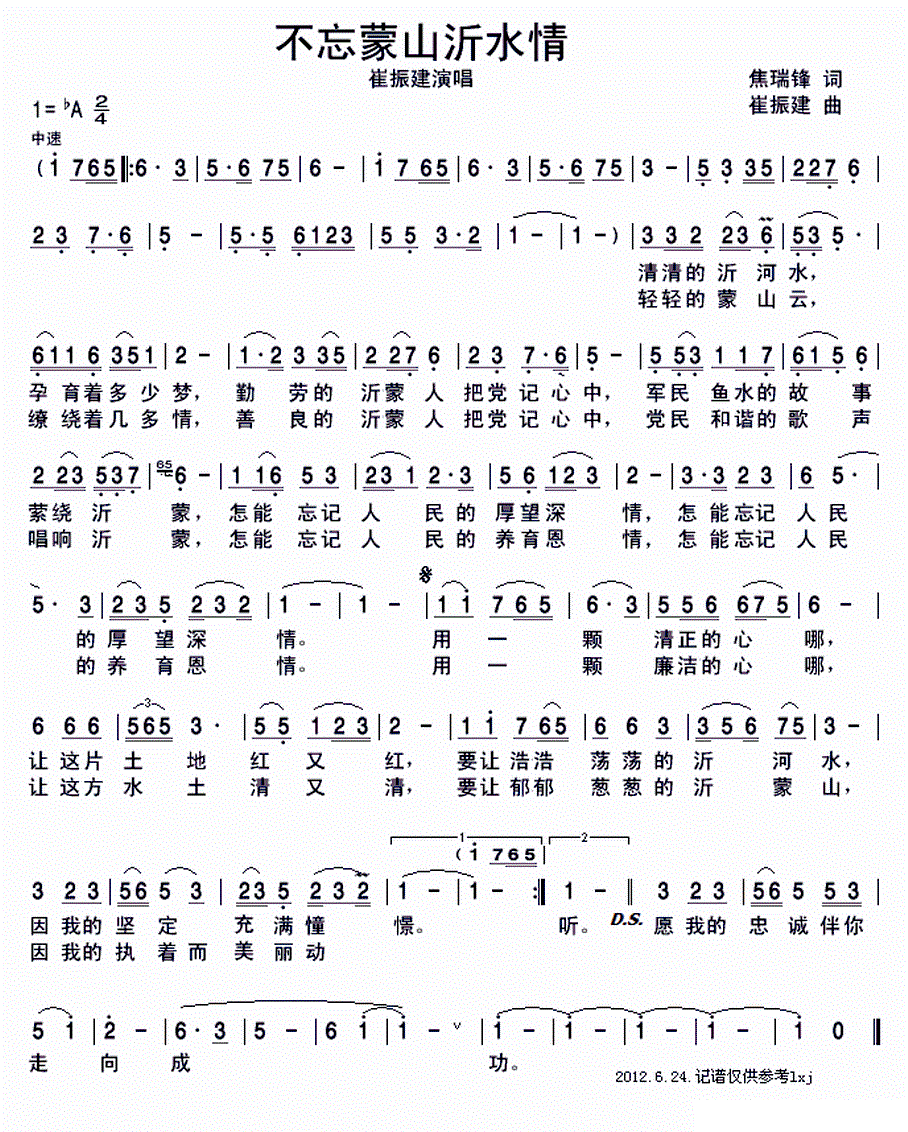 不忘蒙山沂水情
崔振建演唱
焦瑞锋 词
1=♭A 2/4
崔振建 曲
中速
(i 765‖:6· 3|5·6 75|6 -|i 7 65|6· 3|5·6 75|3 -|5 3 35|227 6|
2 3 7·6|5 -|5·5 6123|55 3·2|1 -|1 -)|332 236|53 5·|
清清的沂河水,
轻轻的蒙山云,
6116 351|2 -|1·2 3 35|2 27 6|2 3 7·6|5 -|5 53 1 1 7|615 6|
孕育着多少梦, 勤劳的沂蒙人把党记心中, 军民鱼水的故事
缭绕着几多情, 善良的沂蒙人把党记心中, 党民和谐的歌声
2 23 537|65 6 -|1 16 5 3|23 1 2·3|5 6 123|2 -|3·3 2 3|6 5·|
萦绕沂蒙, 怎能忘记人民的厚望深情, 怎能忘记人民
唱响沂蒙, 怎能忘记人民的养育恩情, 怎能忘记人民
5· 3|235 232|1 -|1 -|11 765|6·3|556 675|6 -|
的厚望深情。 用一颗清正的心哪,
的养育恩情。 用一颗廉洁的心哪,
6 6 6|3 565 3·|55 123|2 -|1 i 7 65|6 6 3|356 75|3 -|
让这片土地红又红, 要让浩浩荡荡的沂河水,
让这方水土清又清, 要让郁郁葱葱的沂蒙山,
1 2
(i 765|
3 2 3|56 5 3|235 232|1 -|1 -:‖1 -‖3 2 3|56 5 53|
因我的坚定充满憧憬。 听。 D.S. 愿我的忠诚伴你
因我的执着而美丽动
5 i|2 -|6·3|5 -|6 i|i - ∨|i -|i -|i -|i -|i 0‖
走向成功。
2012.6.24.记谱仅供参考lxj